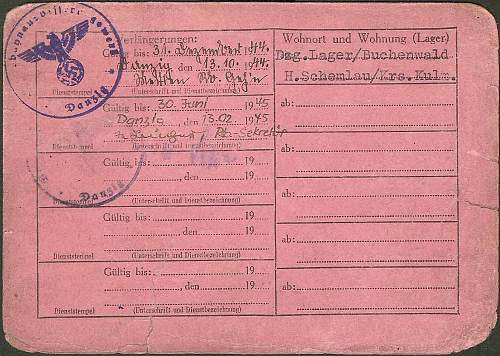 Verlängerungen:
Gültig bis: 31. Dezember 1944.
Danzig, 13.10.1944.
Dienststempel (Unterschrift und Dienstbezeichnung)
Danzig
Gültig bis: 30. Juni 1945
Danzig 13.02.1945
Dienststempel (Unterschrift und Dienstbezeichnung)
Gültig bis: 19
, den 19
Dienststempel (Unterschrift und Dienstbezeichnung)
Danzig
Gültig bis: 19
, den 19
Dienststempel (Unterschrift und Dienstbezeichnung)
Gültig bis: 19
, den 19
Dienststempel (Unterschrift und Dienstbezeichnung)
Wohnort und Wohnung (Lager)
Dsg.Lager/Buchenwald
H.Schemlau/Krs.Kulm.
ab:
ab:
ab:
ab: